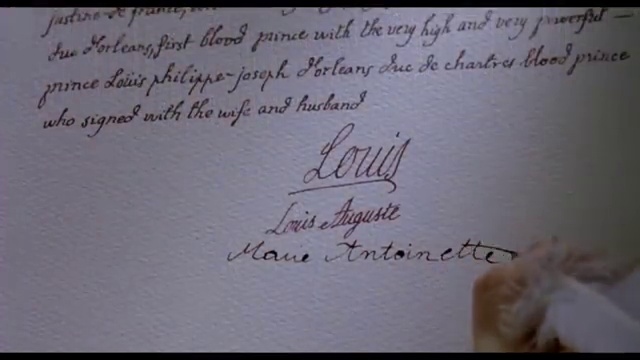 justine de france,
duc d'orleans, first blood prince with the very high and very powerful —
prince Loüis philippe-joseph d'orleans duc de chartres blood prince
who signed with the wife and husband
Louis
Louis Auguste
Marie Antoinette